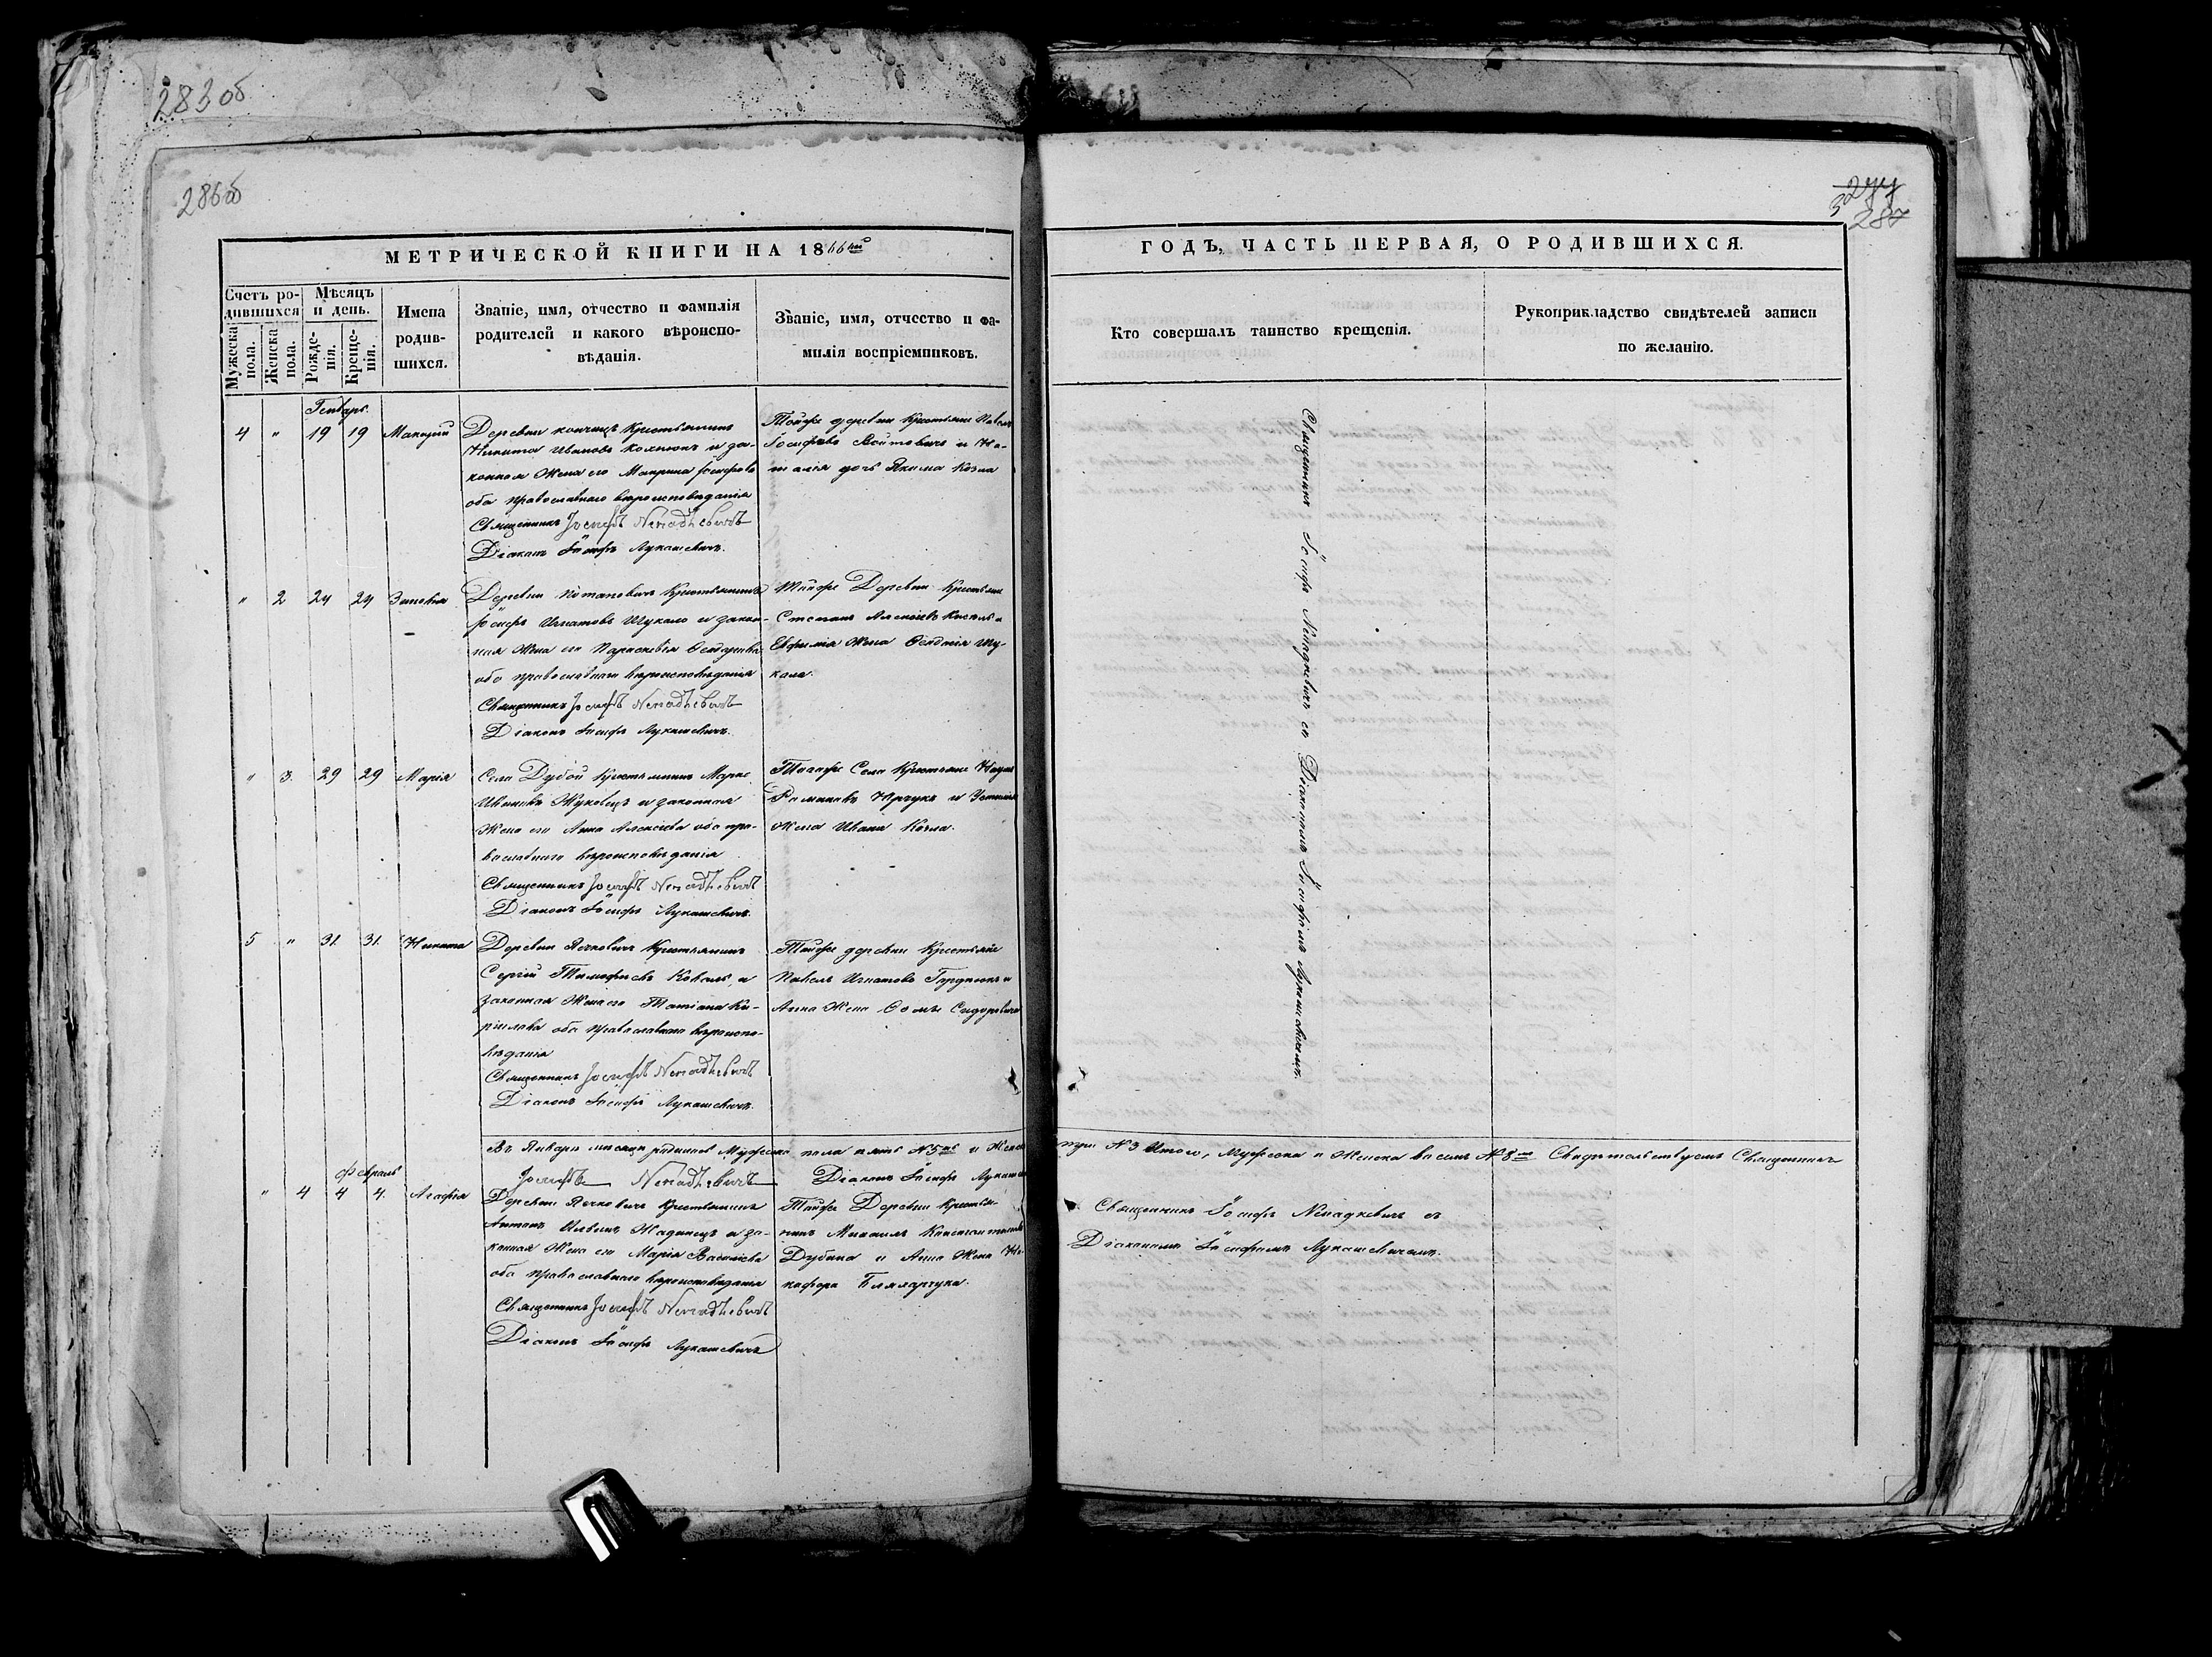 283об
286об
277
287
МЕТРИЧЕСКОЙ КНИГИ НА 1866й
ГОДЪ, ЧАСТЬ ПЕРВАЯ, О РОДИВШИХСЯ.
Счетъ ро-
дившихся
Мужеска
пола.
Женска
пола.
Мѣсяцъ
и день.
Рожде-
нія.
Креще-
нія.
Имена
родив-
шихся.
Званіе, имя, отчество и фамилія
родителей и какого вѣроиспо-
вѣданія.
Званіе, имя, отчество и фа-
милія воспріемниковъ.
Кто совершалъ таинство крещенія.
Рукоприкладство свидѣтелей записи
по желанію.
Генварь.
4 " 19 19
Деревни крестьянинъ
Никита Ивановъ и за-
конная Жена его Макрина Іосифова
оба православнаго вѣроисповѣданія
Священникъ Іосифъ Ненадкевичъ
Діаконъ Іосифъ Лукашевичъ.
Тойже деревни Крестьяне Павелъ
Іосифовъ Войтовичъ и На-
талія дочь Якима Козла
" 2 24 24 Зиновія
Деревни Потаповичъ Крестьянинъ
Іосифъ Игнатовъ Шукало и закон-
ная Жена его Параскевія
оба православнаго вѣроисповѣданія
Священникъ Іосифъ Ненадкевичъ
Діаконъ Іосифъ Лукашевичъ.
Тойже Деревни Крестьяне
Степанъ Алексіевъ и
Евфимія Жена Шу-
кала.
" 3. 29 29 Марія
Села Дубой Крестьянинъ Марко
Ивановъ Жуковецъ и законная
Жена его Анна Алексіева оба пра-
вославнаго вѣроисповѣданія
Священникъ Іосифъ Ненадкевичъ
Діаконъ Іосифъ Лукашевичъ
Тогоже Села Крестьяне Наумъ
Романовъ и
Жена Ивана Козла.
5 " 31. 31. Никита
Деревни Ячковичъ Крестьянинъ
Сергій Тимофеевъ Коваль, и
законная Жена его Татіана Ки-
рилова оба Православнаго вѣроиспо-
вѣданія
Священникъ Іосифъ Ненадкевичъ
Діаконъ Іосифъ Лукашевичъ.
Тойже деревни Крестьяне
Павелъ Игнатовъ Гордіюкъ и
Анна Жена Ѳомы Сидоровича
Священникъ Іосифъ Ненадкевичъ съ Діакономъ Іосифомъ Лукашевичемъ.
Въ Январѣ мѣсяцѣ родилось Мужеска пола пять №5ть и Женска
три №3 Итого, Мужеска и Женска восемь №8мь Свидѣтельствуемъ Священникъ
Іосифъ Ненадкевичъ Діаконъ Іосифъ
Февраль
" 4 4 4. Агафія
Деревни Ячковичъ Крестьянинъ
Антонъ и за-
конная Жена его Марія Васильева
оба православнаго вѣроисповѣданія
Священникъ Іосифъ Ненадкевичъ
Діаконъ Іосифъ Лукашевичъ
Тойже Деревни Крестья-
нинъ Михаилъ Константиновъ
Дубина и Анна Жена Ни-
кифора
Священникъ Іосифъ Ненадкевичъ съ
Діакономъ Іосифомъ Лукашевичемъ.